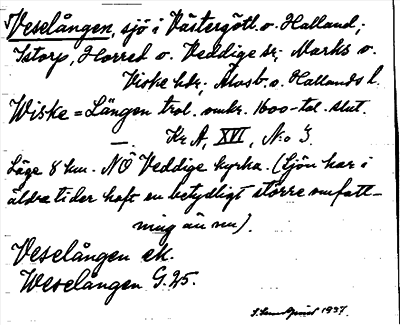 Veselången, sjö i Västergötl. o. Halland;
Istorp, Horred o. Veddige sr; Marks o.
Viske hdr; Älvsb. o. Hallands l.
Wiske = Lången trol. omkr. 1600-tal. slut.
— Kr. A, XVI, N:o 3.
Läge 8 km. NÖ Veddige kyrka. (Sjön har i
äldre tider haft en betydligt större omfatt-
ning än nu).
Veselången ek.
Weselangen G. 25.
1937.